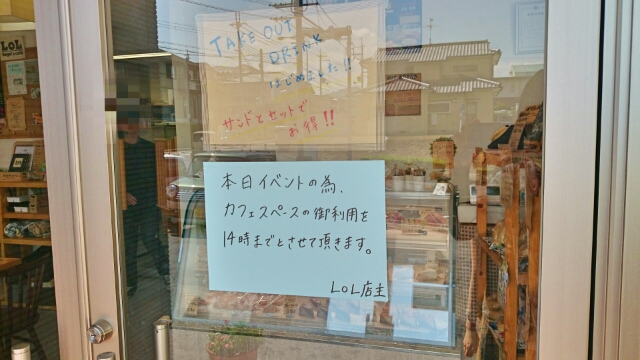 LOL
TAKE OUT
DRINK
はじめました!!
サンドとセットで
お得!!
本日イベントの為、
カフェスペースの御利用を
14時までとさせて頂きます。
LOL店主